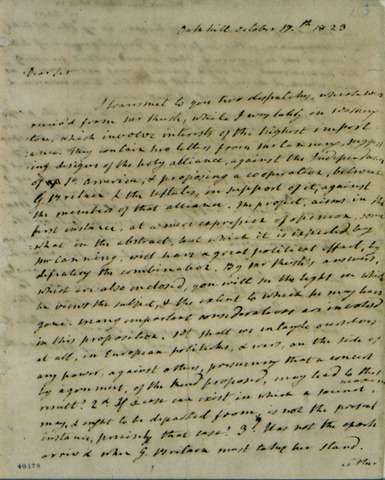 Oakhill October 17th 1823
Dear Sir
I transmit to you two despatches, which were
receiv'd from Mr Rush, while I was lately in Washing-
ton, which involve interests of the highest import-
ance. They contain two letters from Mr Canning, suggest-
ing designs of the holy alliance, against the Independence
of So America, & proposing a co-operation, between
G. Britain & the UStates, in support of it, against
the members of that alliance. The project, aims in the
first instance, at a mere expression of opinion, some
what in the abstract, but which it is expected by
Mr Canning, will have a great political effect, by
defeating the combination. By Mr Rush's answers,
which are also enclosed, you will see the light in which
he views the subject, & the extent to which he may have
gone. Many important considerations are involved
in this proposition. 1st Shall we entangle ourselves,
at all, in European politicks, & wars, on the side of
any power, against others, presuming that a concert
by agreement, of the kind proposed, may lead to that
result? 2d If a case can exist, in which a sound maxim
may, & ought to be departed from, is not the present
instance, precisely that case? 3d Has not the epoch
arriv'd when G. Britain must take her stand,
40178